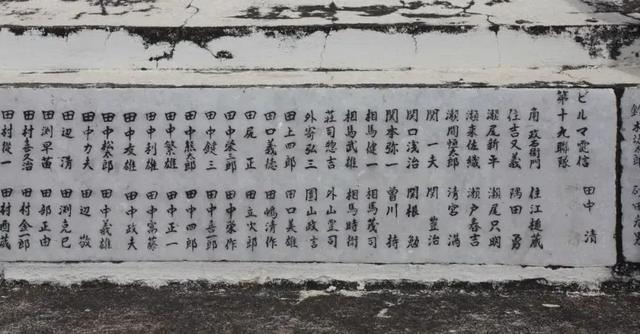 ビルマ電信 田中 清
第十九聯隊
角 政右衛門 住江樋蔵
住吉又義 隅田 勇
瀬尾新平 瀬尾只明
瀬来佐織 瀬戸春吉
瀬間恒太郎 清宮 満
関 一夫 関 豊治
関口浅治 関根 勉
関本弥一 曽川 持
相馬健一 相馬茂司
相馬武雄 相馬時衛
荘司惣吉 外山里司
外寄弘三 園山政吉
田上四郎 田口美雄
田口義徳 田嶋清作
田尻 正 田立火郎
田中栄三郎 田中栄作
田中鍵三 田中喜一郎
田中熊太郎 田中四郎
田中繁雄 田中正一
田中利雄 田中富藤
田中友雄 田中政夫
田中松太郎 田中義雄
田中力夫 田辺 敬
田辺 清 田渕克巳
田渕早苗 田部正由
田村喜又治 田村金一郎
田村 一 田村酉蔵